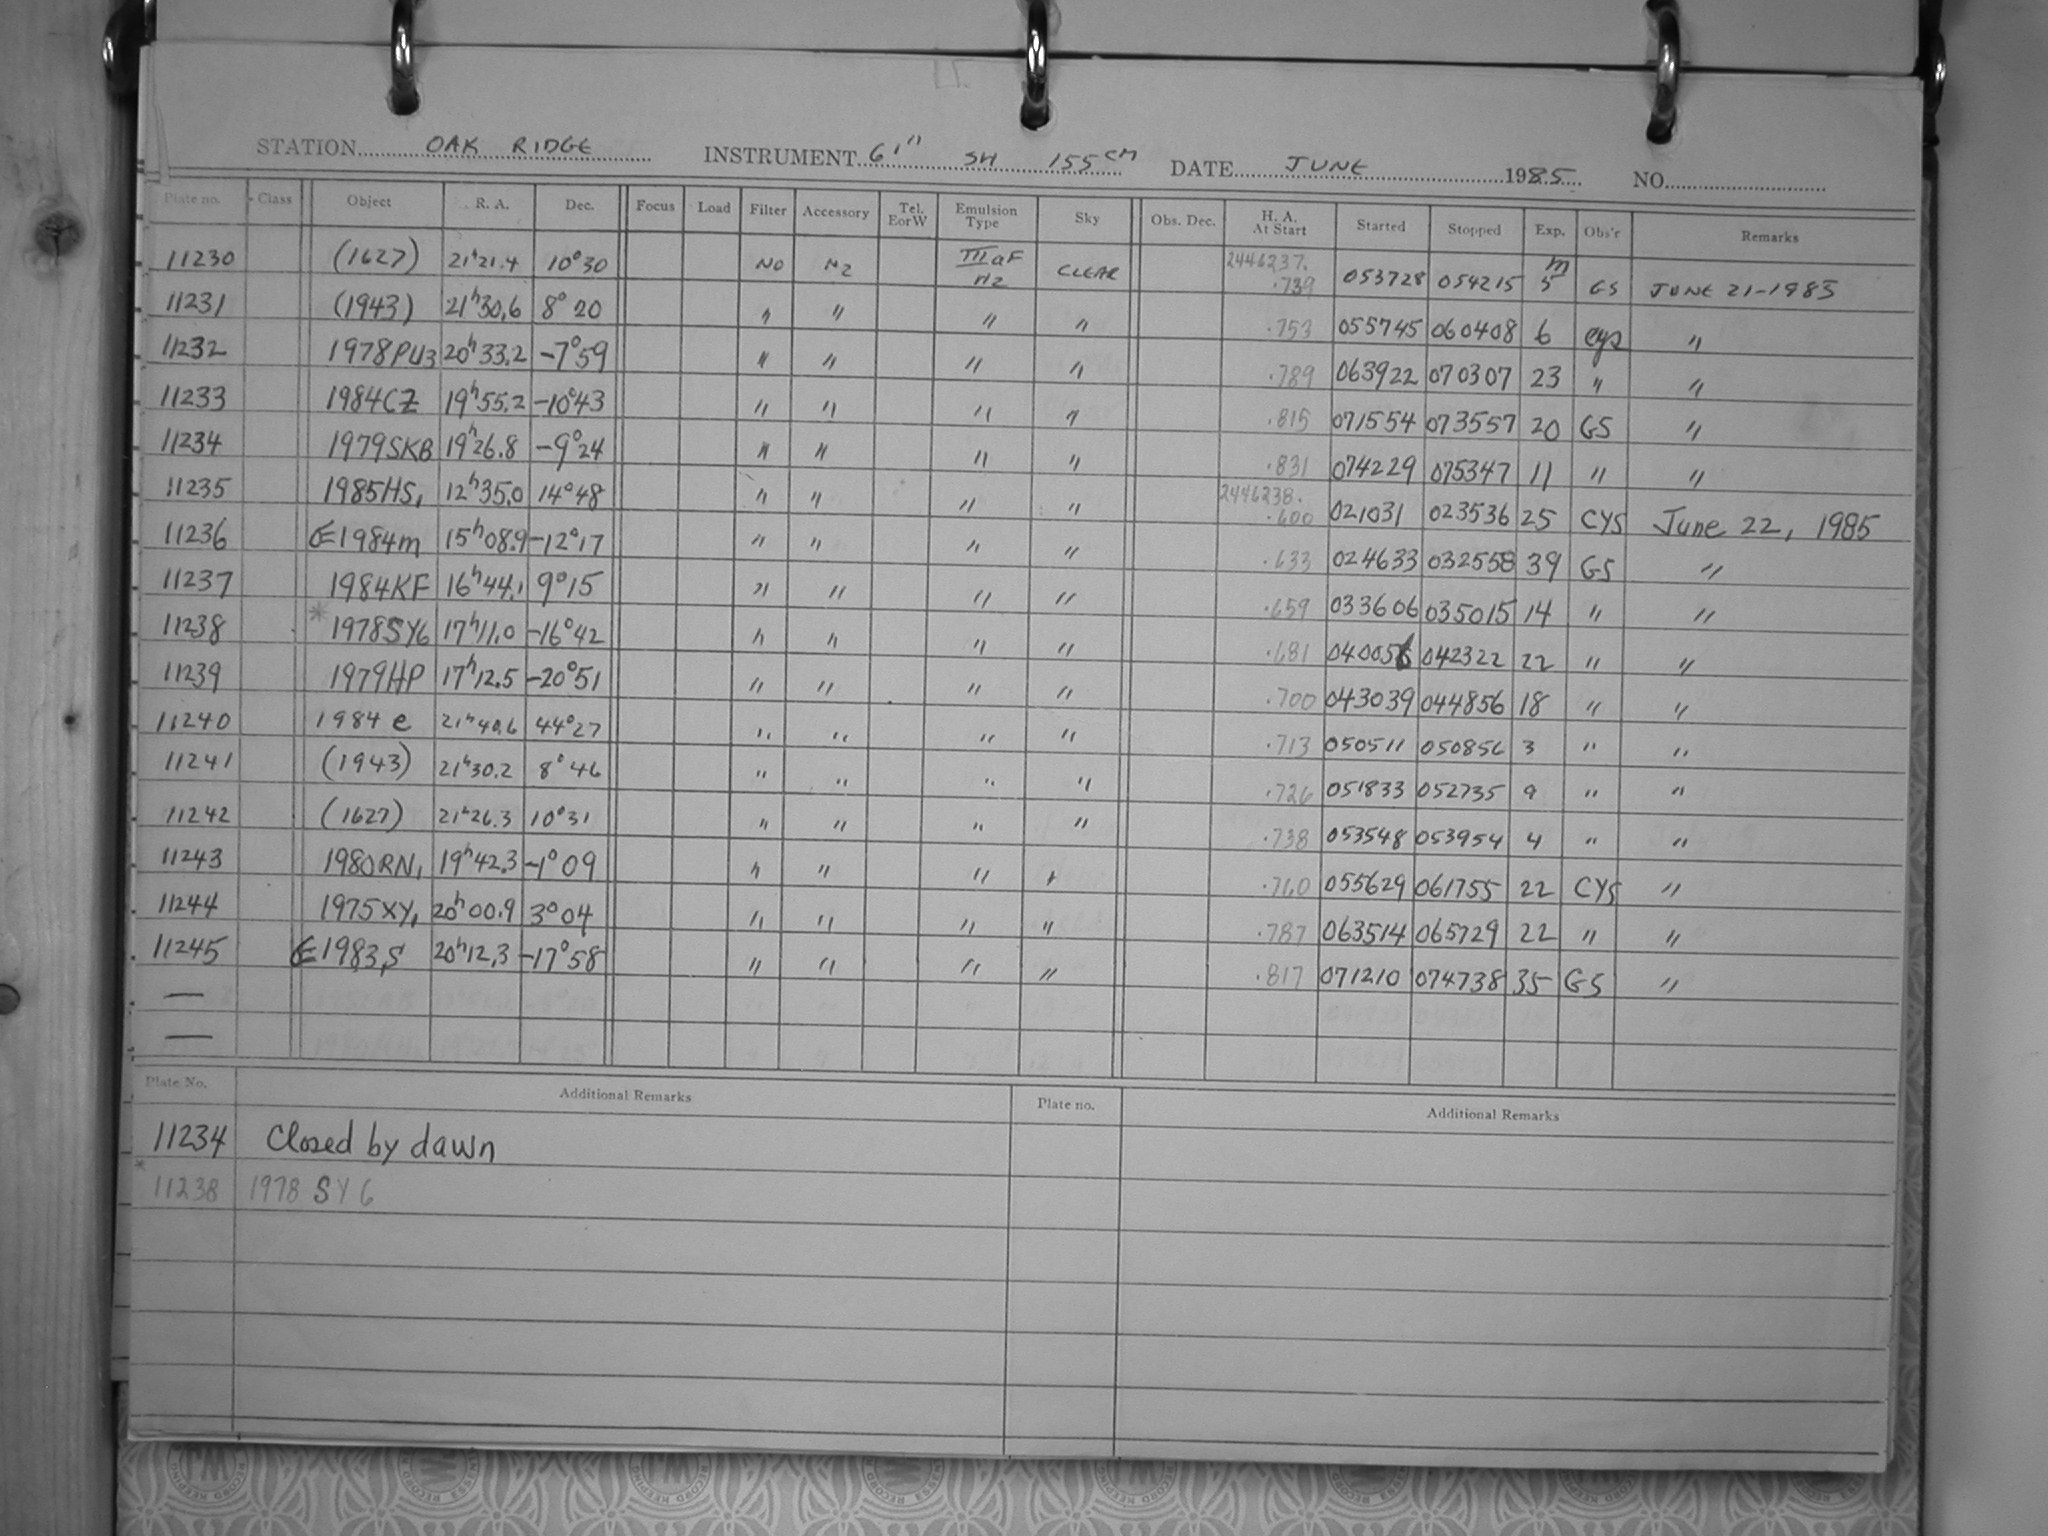 STATION OAK RIDGE INSTRUMENT 61" SH 155 CM DATE JUNE 1985 NO.
Plate no. Class Object R. A. Dec. Focus Load Filter Accessory Tel. EorW Emulsion Type Sky Obs. Dec. H. A. At Start Started Stopped Exp. Obs'r Remarks
11230 (1627) 21h21.4 10°30 NO N2 IIIaF N2 CLEAR 2446237. .739 053728 054215 5m GS JUNE 21-1985
11231 (1943) 21h30.6 8°20 " " " " .753 055745 060408 6 cys "
11232 1978PU3 20h33.2 -7°59 " " " " .789 063922 070307 23 " "
11233 1984CZ 19h55.2 -10°43 " " " " .815 071554 073557 20 GS "
11234 1979SKB 19h26.8 -9°24 " " " " .831 074229 075347 11 " "
11235 1985HS1 12h35.0 14°48 " " " " 2446238. .600 021031 023536 25 CYS June 22, 1985
11236 1984m 15h08.9 -12°17 " " " " .633 024633 032558 39 GS "
11237 1984KF 16h44.1 9°15 " " " " .659 033606 035015 14 " "
11238 * 1978SY6 17h11.0 -16°42 " " " " .681 040056 042322 22 " "
11239 1979HP 17h12.5 -20°51 " " " " .700 043039 044856 18 " "
11240 1984 e 21h40.6 44°27 " " " " .713 050511 050856 3 " "
11241 (1943) 21h30.2 8°46 " " " " .726 051833 052735 9 " "
11242 (1627) 21h26.3 10°31 " " " " .738 053548 053954 4 " "
11243 1980RN1 19h42.3 -1°09 " " " " .760 055629 061755 22 CYS "
11244 1975XY1 20h00.9 3°04 " " " " .787 063514 065729 22 " "
11245 1983S 20h12.3 -17°58 " " " " .817 071210 074738 35 GS "
—
—
Plate No. Additional Remarks Plate no. Additional Remarks
11234 Closed by dawn
* 11238 1978 SY6